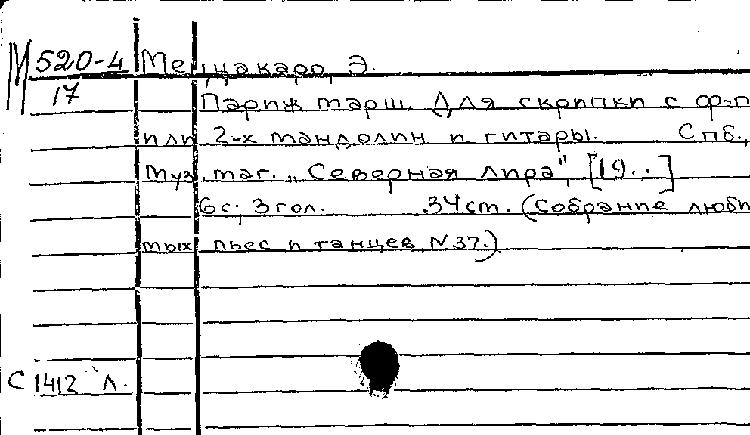 М 520-4 Мещакаро, Э.
17
Париж марш. Для скрипки с ф-п
или 2-х мандолин и гитары. Спб.,
муз. маг. „Северная лира", [19..]
6 с; 3 гол. 34 см. (Собрание люби
мых пьес и танцев N 37.)
С 1412 Л.